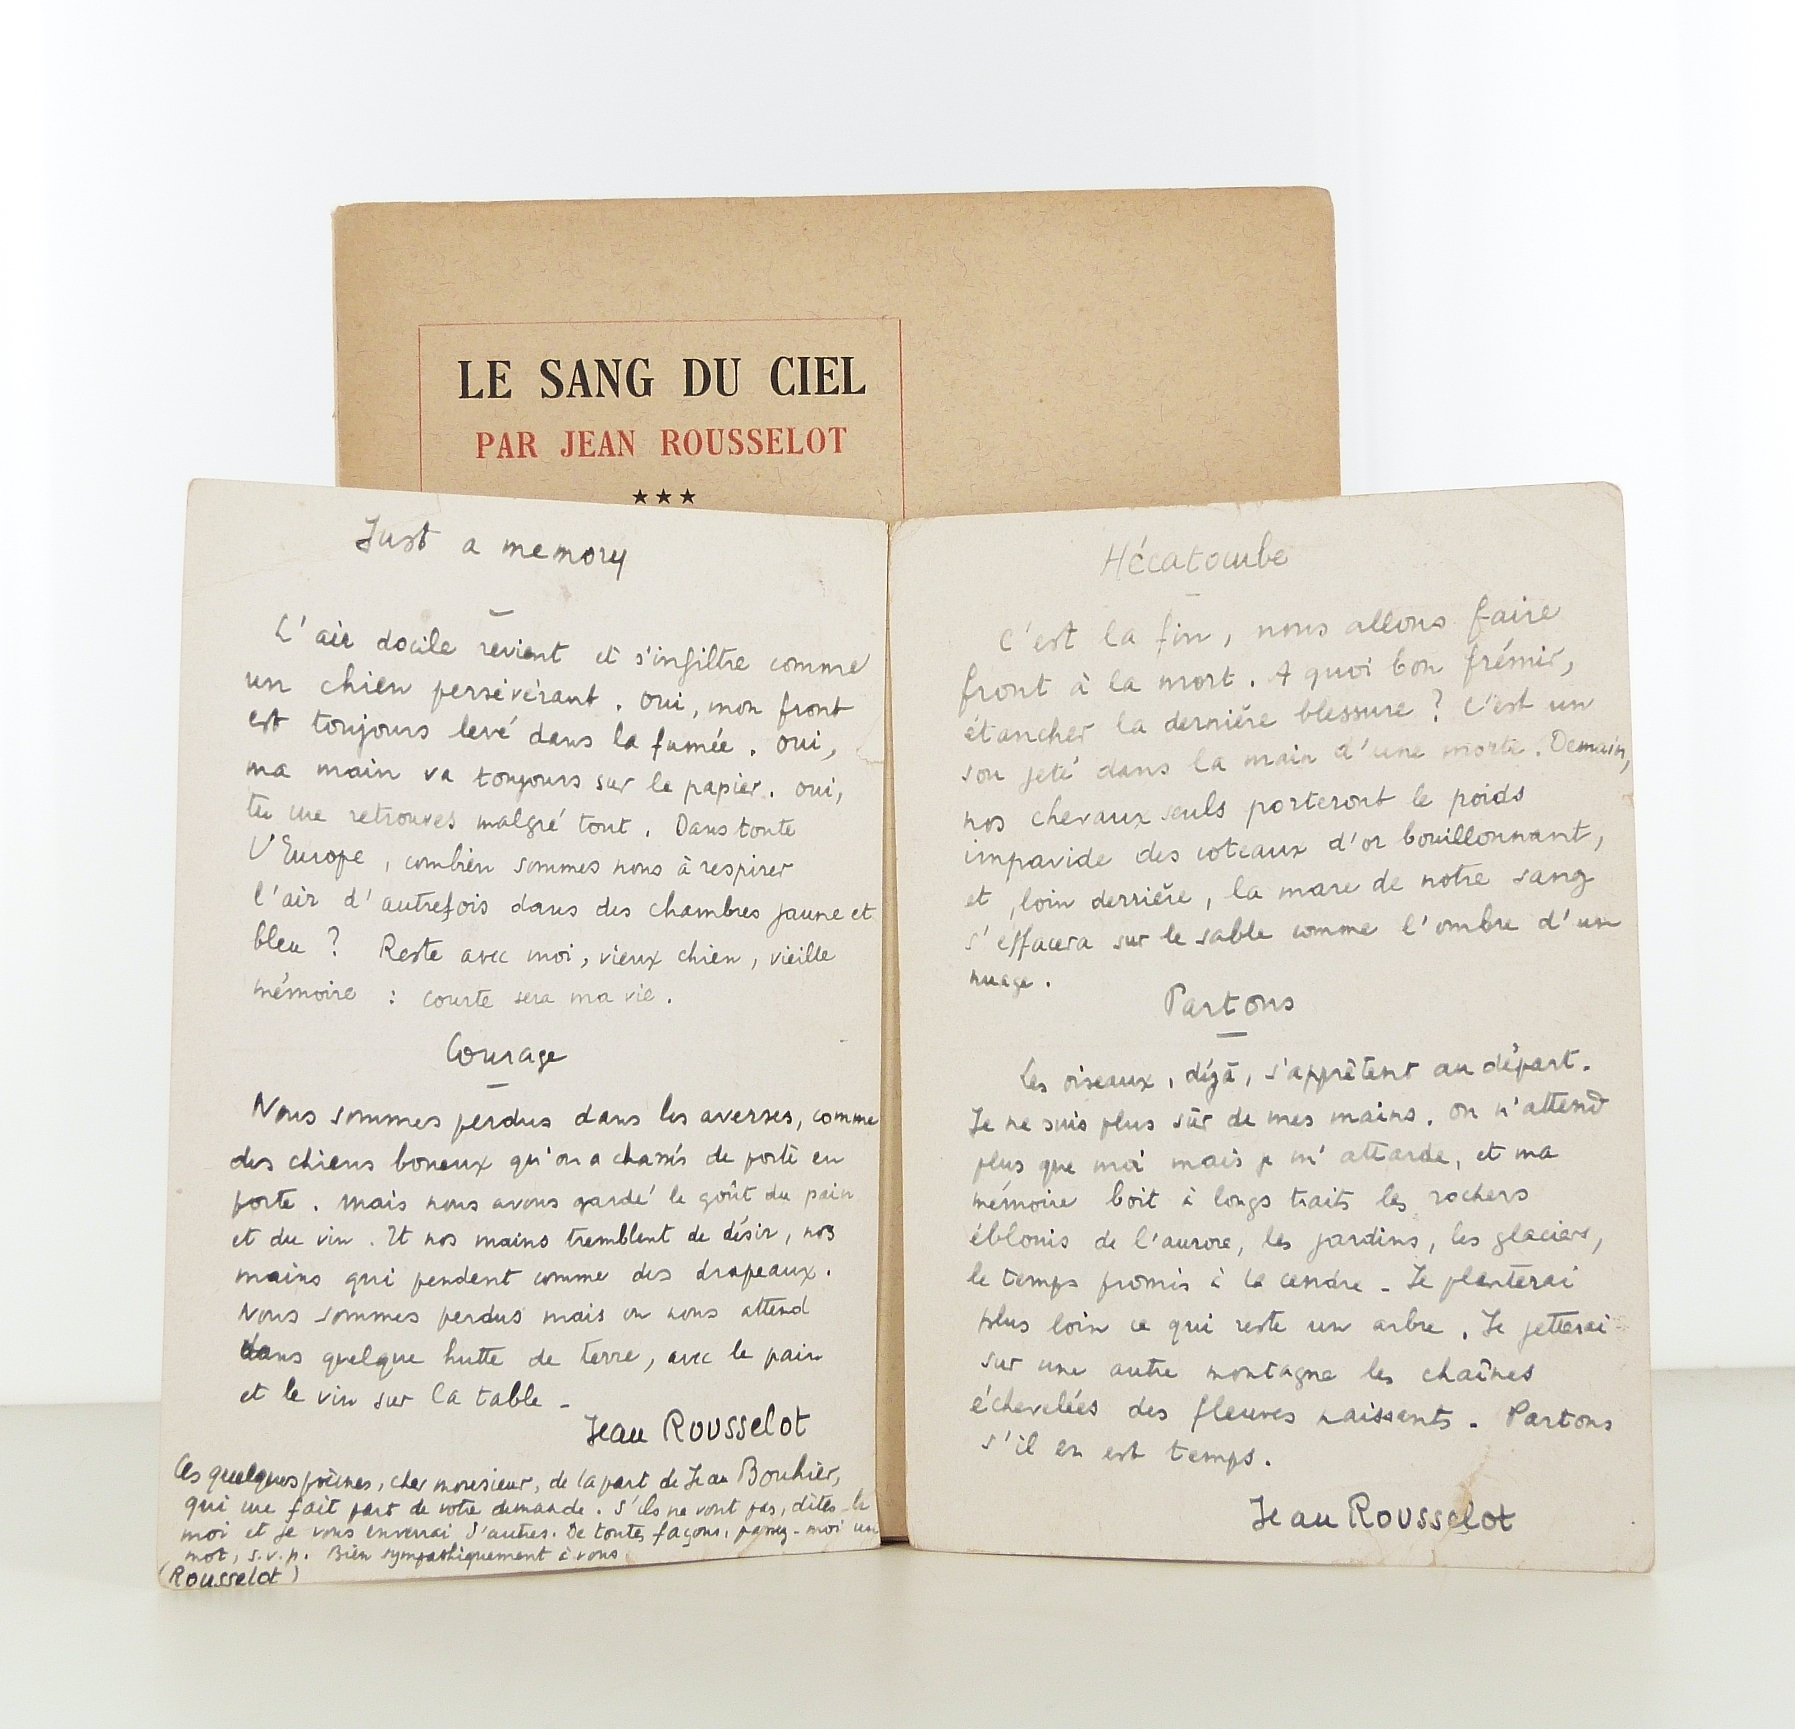 LE SANG DU CIEL
PAR JEAN ROUSSELOT
★★★
Just a memory
L'air docile revient et s'infiltre comme
un chien persévérant. Oui, mon front
est toujours levé dans la fumée. Oui,
ma main va toujours sur le papier. Oui,
tu me retrouves malgré tout. Dans toute
l'Europe, combien sommes nous à respirer
l'air d'autrefois dans des chambres jaune et
bleu ? Reste avec moi, vieux chien, vieille
mémoire : courte sera ma vie.
Courage
Nous sommes perdus dans les averses, comme
des chiens boueux qu'on a chassés de porte en
porte. Mais nous avons gardé le goût du pain
et du vin. Et nos mains tremblent de désir, nos
mains qui pendent comme des drapeaux.
Nous sommes perdus mais on nous attend
dans quelque hutte de terre, avec le pain
et le vin sur la table -
Jean ROUSSELOT
Ces quelques poèmes, cher monsieur, de la part de Jean Bouhier,
qui me fait part de votre demande. S'ils ne vont pas, dites-le
moi et je vous enverrai d'autres. De toutes façons, passez-moi un
mot, s.v.p. Bien sympathiquement à vous
(Rousselot)
Hécatombe
C'est la fin, nous allons faire
front à la mort. A quoi bon frémir,
étancher la dernière blessure ? C'est un
sou jeté dans la main d'une morte. Demain,
nos chevaux seuls porteront le poids
impavide des coteaux d'or bouillonnant,
et, loin derrière, la mare de notre sang
s'effacera sur le sable comme l'ombre d'un
nuage.
Partons
Les oiseaux, déjà, s'apprêtent au départ.
Je ne suis plus sûr de mes mains. On n'attend
plus que moi mais je m'attarde, et ma
mémoire boit à longs traits les rochers
éblouis de l'aurore, les jardins, les glaciers,
le temps promis à la cendre - Je planterai
plus loin ce qui reste un arbre. Je jetterai
sur une autre montagne les chaînes
échevelées des fleuves naissants. Partons
s'il en est temps.
Jean ROUSSELOT